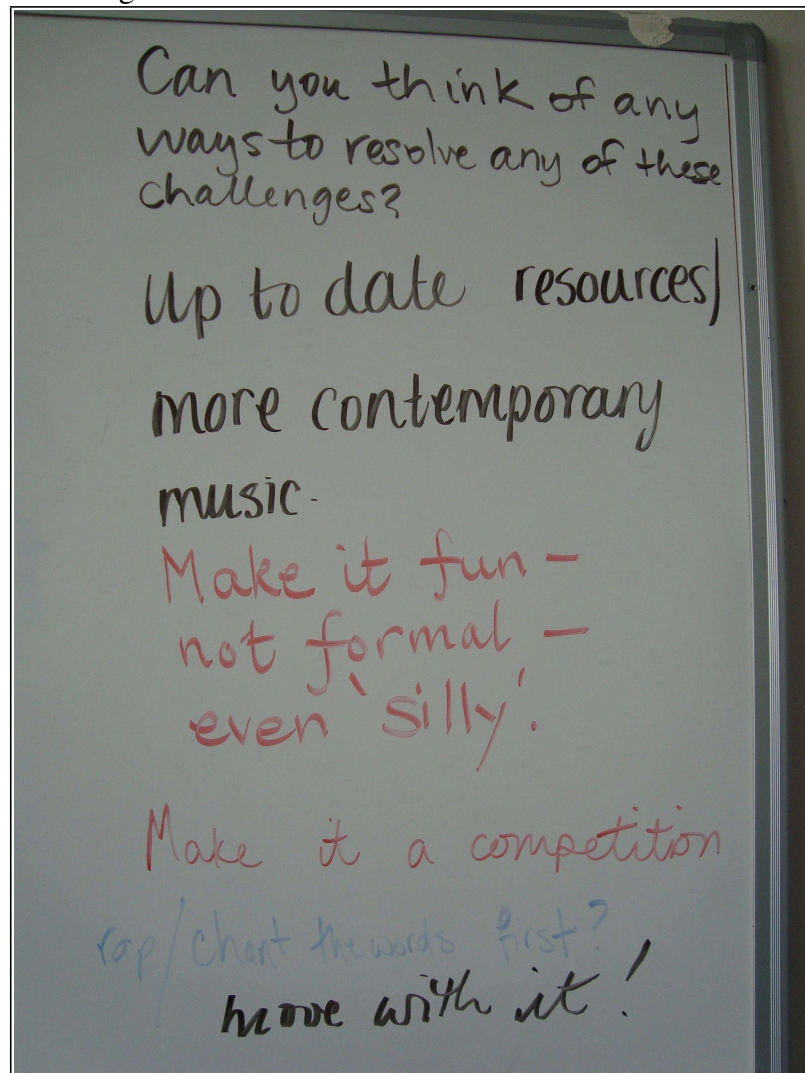 Can you think of any
ways to resolve any of these
challenges?
Up to date resources/
more contemporary
music.
Make it fun –
not formal –
even 'silly'.
Make it a competition
rap/chant the words first?
move with it!